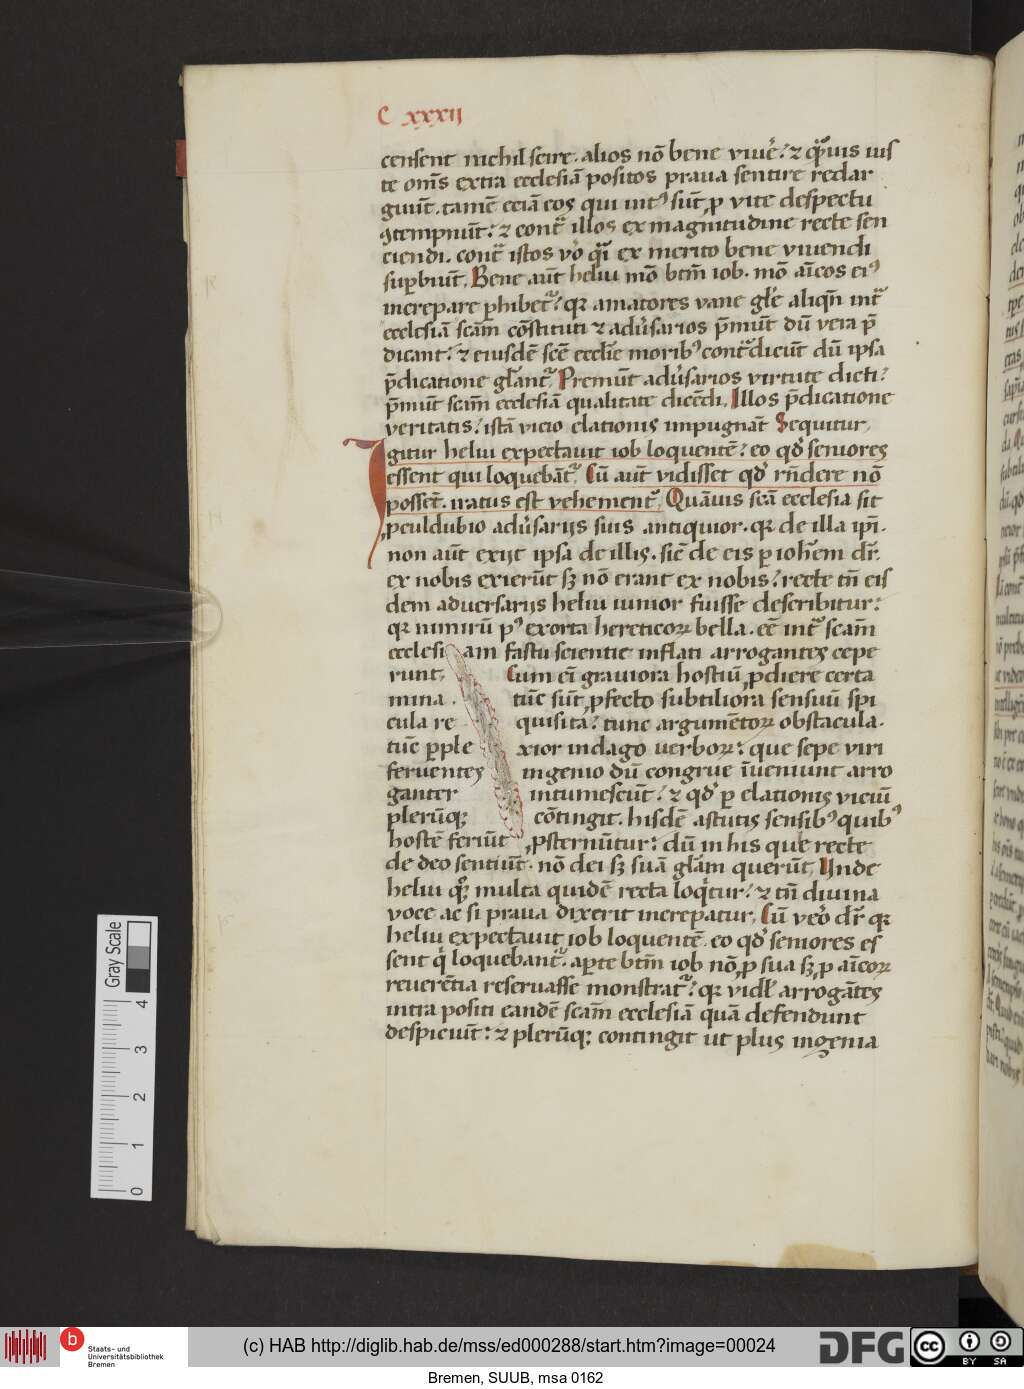 C xxxii
censent nichil scire. alios nō bene viuē᷒? ⁊ qͣuis ius
te om̄s extra ecclesiā positos praua sentire redar
guūt. tamē eciā eos qui intᷣ sūt, ꝓ vite despectu
ꝯtempnūt: ⁊ contͣ illos ex magnitudine recte sen
ciendi. contͣ istos vᷣo qͣi ex merito bene viuendi
suꝑbiūt. Bene aūt heliu mō btm̄ iob. mō aīcos eiᷣ
increpare ꝓhibetᷣ? qꝛ amatores vane gl̄e aliqn̄ intͣ
ecclesiā scām cōstituti ⁊ adūsarios p̄mūt dū vera p̄
dicant: ⁊ eiusdē scē eccl̄ie moribꝰ contͣdicūt dū ipsa
p̄dicatione gl̄antᷣ. Premūt adūsarios virtute dicti?
p̄mūt scām ecclesiā qualitate dicēdi. Illos p̄dicatione
veritatis? istā vicio elationis impugnāt Sequitur.
Igitur heliu expectauit iob loquentē? eo qd̓ seniores
essent qui loquebātᷣ. Cū aūt vidisset qd̓ rn̄dere nō
possēt. iratus est vehementᷣ. Quāuis scā ecclesia sit
ꝓculdubio adūsariis suis antiquior. qꝛ de illa ip̄i.
non aūt exijt ipsa de illis. sicē de eis ꝑ ioh̄em dr̄.
ex nobis exierūt sꝫ nō erant ex nobis? recte tn̄ eis
dem aduersarijs heliu iunior fuisse describitur:
qꝛ nimirū pꝰ exorta hereticoꝝ bella. cē intͣ scām
ecclesi am fastu scientie inflati arrogantes cepe
runt. Cum em̄ grauiora hostiū ꝓdiere certa
mina . tūc sūt ꝓfecto subtiliora sensuū spi
cula re quisita? tunc argumētoꝝ obstacula.
tūc ꝑple xior indago verboꝝ: que sepe viri
feruentes ingenio dū congrue īueniunt arro
ganter intumescūt? ⁊ qd̓ ꝑ elationis viciū
plerūqꝫ cōtingit. hisdē astutis sensibꝰ quibꝰ
hostē feriūt ꝓsternūtur: dū in his que recte
de deo sentiūt. nō dei sꝫ suā gl̄am querūt. Unde
heliu qͣꝫ multa quidē recta loqͥtur? ⁊ tn̄ diuina
voce ac si praua dixerit increpatur. Cū vēo dr̄ qꝛ
heliu expectauit iob loquentē. eo qd̓ seniores es
sent qͥ loquebantᷣ. aꝑte btm̄ iob nō ꝓ sua sꝫ ꝓ aīcoꝝ
reuerētia reseruasse monstratᷣ? qꝛ vidꝫ arrogātes
intra positi eandē scām ecclesiā quā defendunt
despiciūt: ⁊ plerūqꝫ contingit ut plus ingenia
Gray Scale
4
3
2
1
0
b
Staats- und
Universitätsbibliothek
Bremen
(c) HAB http://diglib.hab.de/mss/ed000288/start.htm?image=00024
DFG
cc
BY
SA
Bremen, SUUB, msa 0162